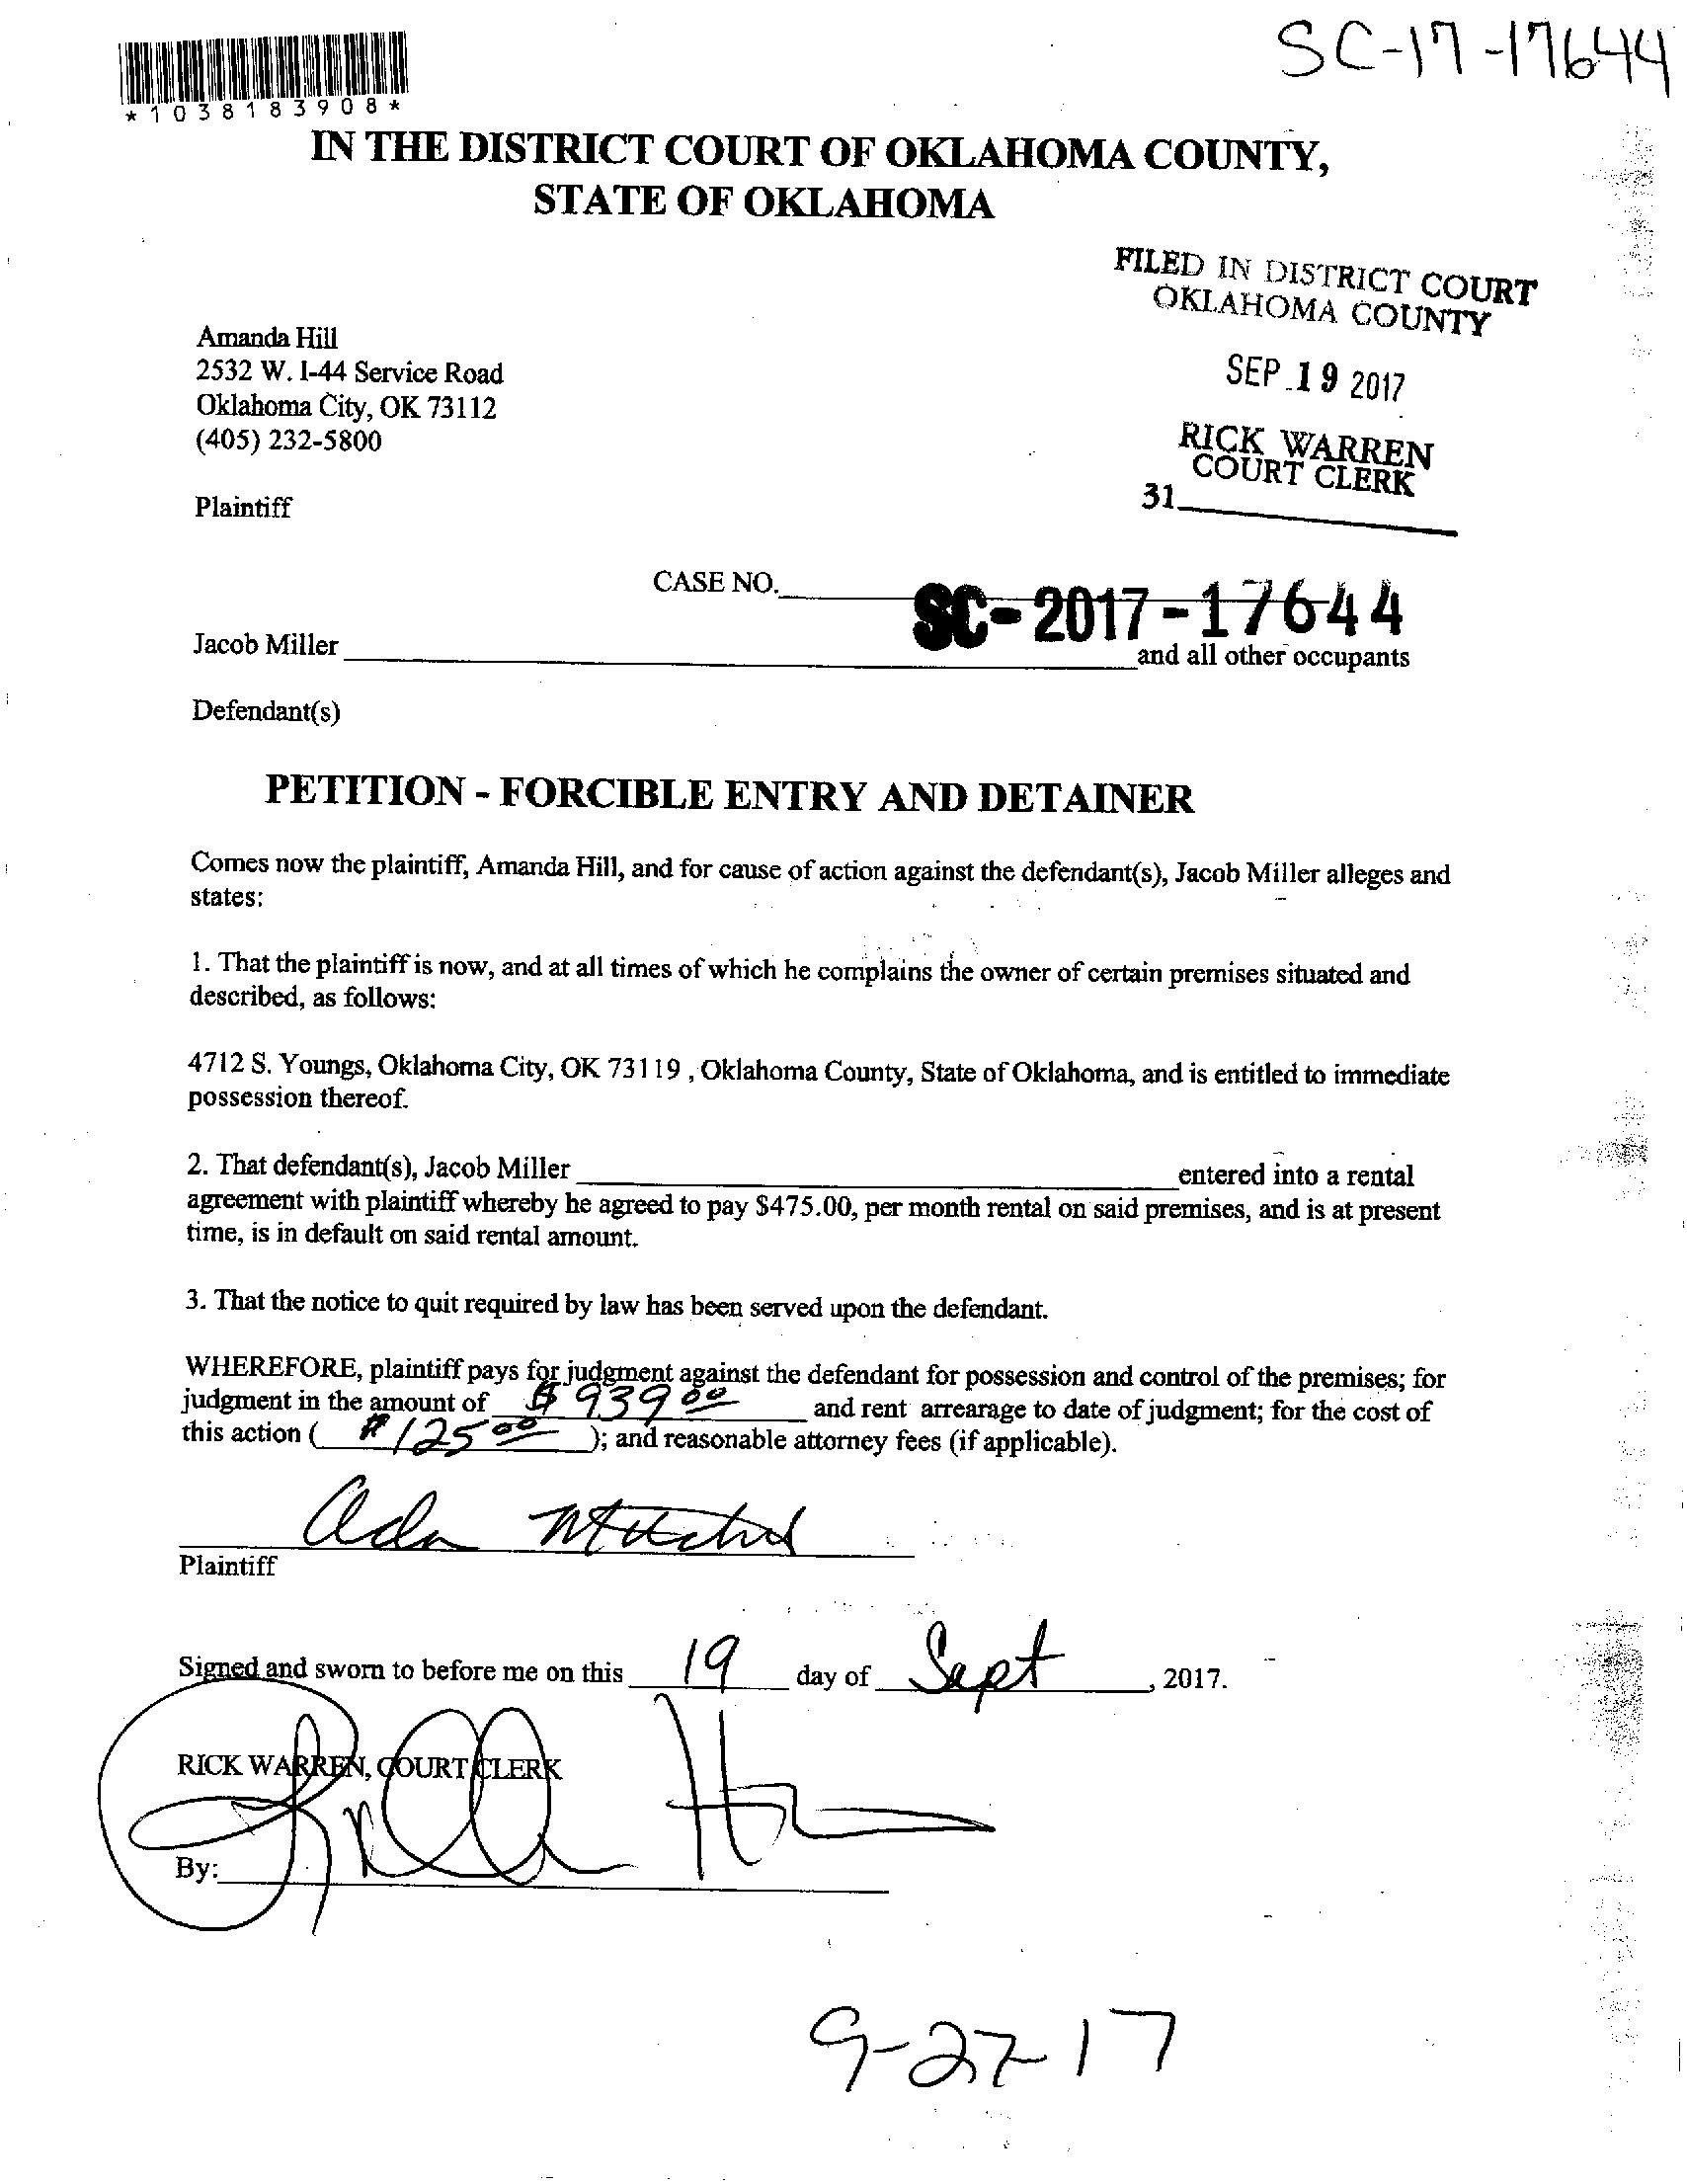 SC-17-17644
*1038183908*
IN THE DISTRICT COURT OF OKLAHOMA COUNTY,
STATE OF OKLAHOMA
FILED IN DISTRICT COURT
OKLAHOMA COUNTY
SEP 19 2017
RICK WARREN
COURT CLERK
31
Amanda Hill
2532 W. I-44 Service Road
Oklahoma City, OK 73112
(405) 232-5800
Plaintiff
CASE NO. SC-2017-17644
Jacob Miller and all other occupants
Defendant(s)
PETITION - FORCIBLE ENTRY AND DETAINER
Comes now the plaintiff, Amanda Hill, and for cause of action against the defendant(s), Jacob Miller alleges and
states:
1. That the plaintiff is now, and at all times of which he complains the owner of certain premises situated and
described, as follows:
4712 S. Youngs, Oklahoma City, OK 73119 , Oklahoma County, State of Oklahoma, and is entitled to immediate
possession thereof.
2. That defendant(s), Jacob Miller entered into a rental
agreement with plaintiff whereby he agreed to pay $475.00, per month rental on said premises, and is at present
time, is in default on said rental amount.
3. That the notice to quit required by law has been served upon the defendant.
WHEREFORE, plaintiff pays for judgment against the defendant for possession and control of the premises; for
judgment in the amount of $ 939 00 and rent arrearage to date of judgment; for the cost of
this action ( $125 00 ); and reasonable attorney fees (if applicable).
Plaintiff
Signed and sworn to before me on this 19 day of Sept , 2017.
RICK WARREN, COURT CLERK
By:
9-27-17